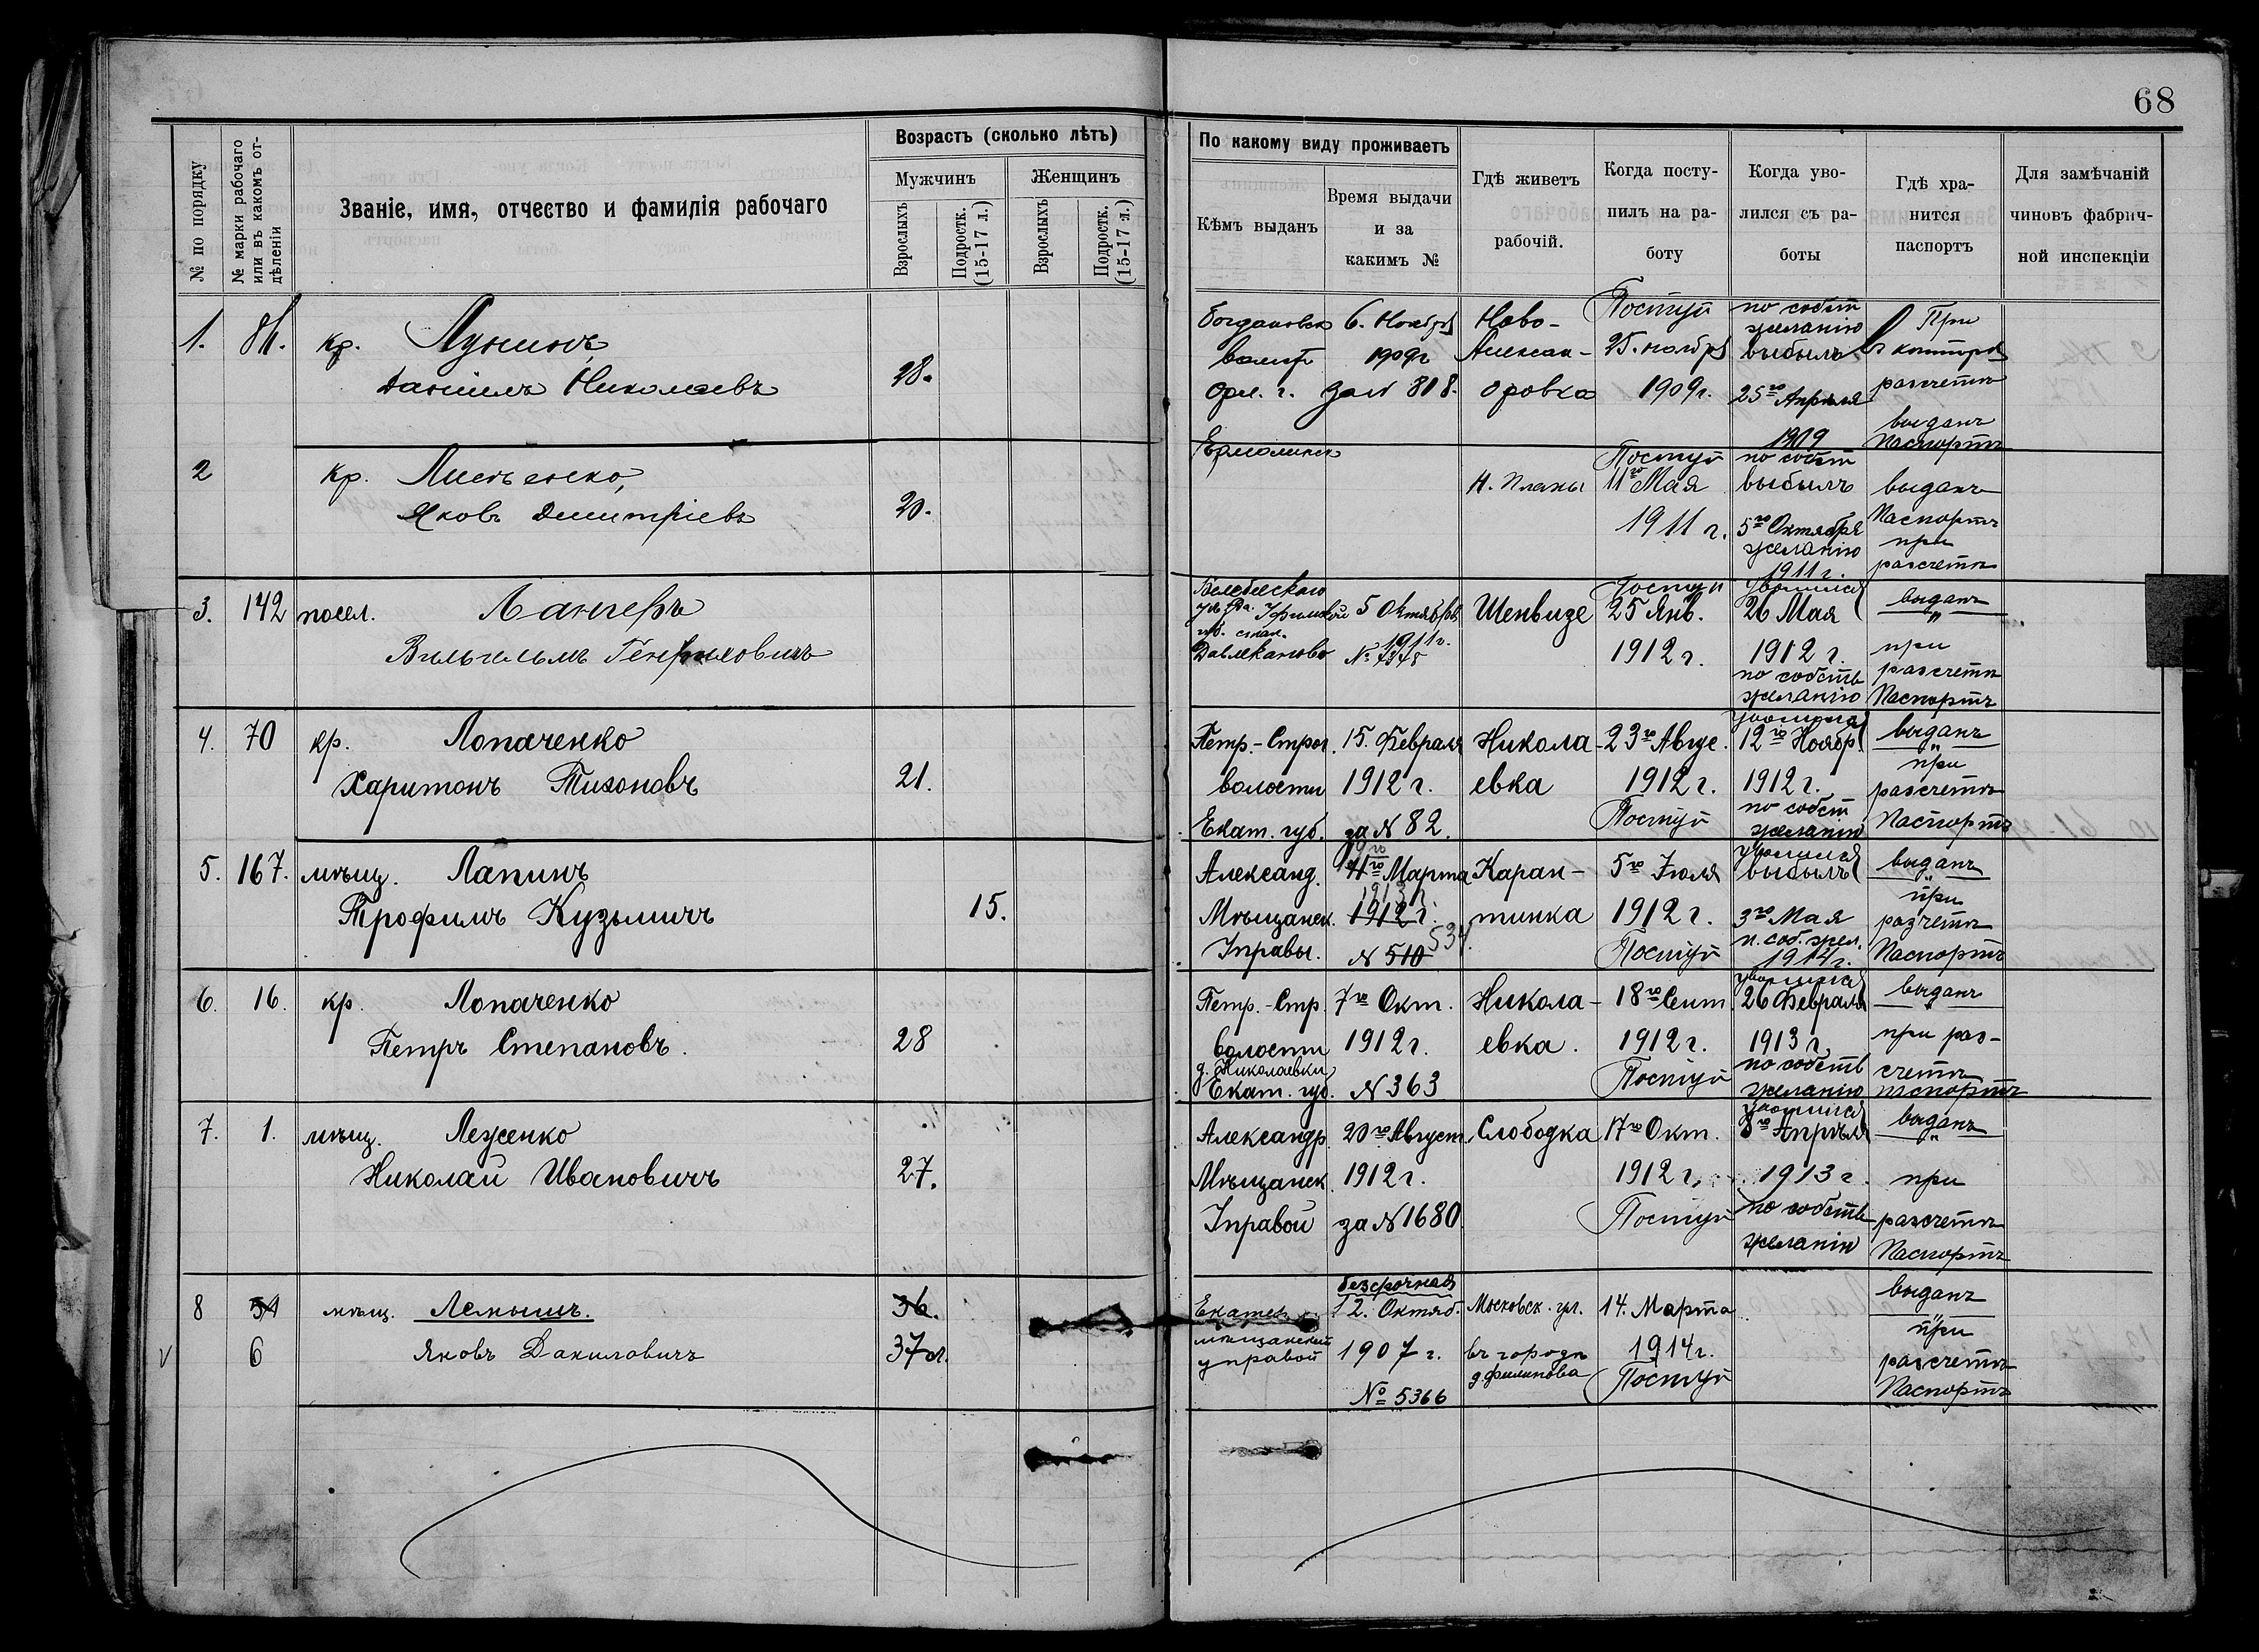 68
№ по порядку
№ марки рабочаго или въ какомъ отдѣленіи
Званіе, имя, отчество и фамилія рабочаго
Возрастъ (сколько лѣтъ)
Мужчинъ
Женщинъ
Взрослыхъ
Подростк. (15-17 л.)
Взрослыхъ
Подростк. (15-17 л.)
По какому виду проживаетъ
Кѣмъ выданъ
Время выдачи
и за
какимъ №
Гдѣ живетъ
рабочій.
Когда посту-
пилъ на ра-
боту
Когда уво-
лился съ ра-
боты
Гдѣ хра-
нится
паспортъ
Для замѣчаній
чиновъ фабрич-
ной инспекціи
1.
кр.
Даніилъ Николаевъ
28.
волост
Орл. г.
6. Ноября
1909г
за N 818.
Ново-
Алексан-
дровка
Поступ
25. ноября
1909г.
по собст
желанію
выбылъ
25го Апрѣля
1909
При
конторѣ
разчетъ
выданъ
Паспортъ
2
кр.
Яковъ Дмитріевъ
20.
Н. Планы
Поступ
11го Мая
1911 г.
по собст
выбылъ
5го Октября
желанію
1911 г.
выданъ
Паспортъ
при
разсчетъ
3. 142 посел. Лангеръ
Вильгельмъ Генриховичъ
Белебеского
Уфимской
Давлеканово
5 Октября
1911г.
№ 7375
Шенвизе
Поступ
25 Янв.
1912 г.
уволился
26 Мая
1912 г.
по собств
желанію
выданъ
"
при
разсчетъ
Паспортъ
4. 70 кр. Лопаченко
Харитонъ Тихоновъ
21.
Петр.-Строг.
волости
Екат. губ.
15. Февраля
1912 г.
за N 82.
Никола-
евка
23го Авгус.
1912 г.
Поступ
уволился
12го Ноябр
1912г.
по собст
желанію
выданъ
"
при
разсчетъ
Паспортъ
5. 167. мѣщ. Лапинъ
Трофимъ Кузьмичъ
15.
Александ.
Мѣщанск.
Управы.
Марта
1913 г
1912 г.
N 510
534.
Каран-
тинка
5го Іюля
1912 г.
Поступ
уволился
выбылъ
3го Мая
п. соб. жел.
1914 г.
выданъ
"
при
разчетъ
Паспортъ
6. 16. кр. Лопаченко
Петръ Степановъ.
28
Петр.-Стр.
волости
д. Николаевки
Екат. губ.
7го Окт.
1912 г.
N 363
Никола-
евка.
18го Сент.
1912 г.
Поступ
уволился
26 Февраля
1913 г.
по собств
желанію
выданъ
"
при раз-
счетъ
паспортъ
7. 1. мѣщ. Леженко
Николай Ивановичъ
27.
Александр.
Мѣщанск.
Управой
20го Август.
1912 г.
за N 1680
Слободка
17го Окт.
1912 г.
Поступ
уволился
8го Апрѣля
1913 г.
по собств
желанію
выданъ
"
при
разсчетъ
Паспортъ
8 мѣщ. Лемышъ.
V 6 Яковъ Даниловичъ
36.
37 л.
Екатер.
мѣщанской
управой
безсрочная
12. Октяб.
1907 г.
№ 5366
Московск. ул.
въ городѣ
д. Филипова
14. Марта
1914г.
Поступ
выданъ
"
при
разсчетъ
Паспортъ